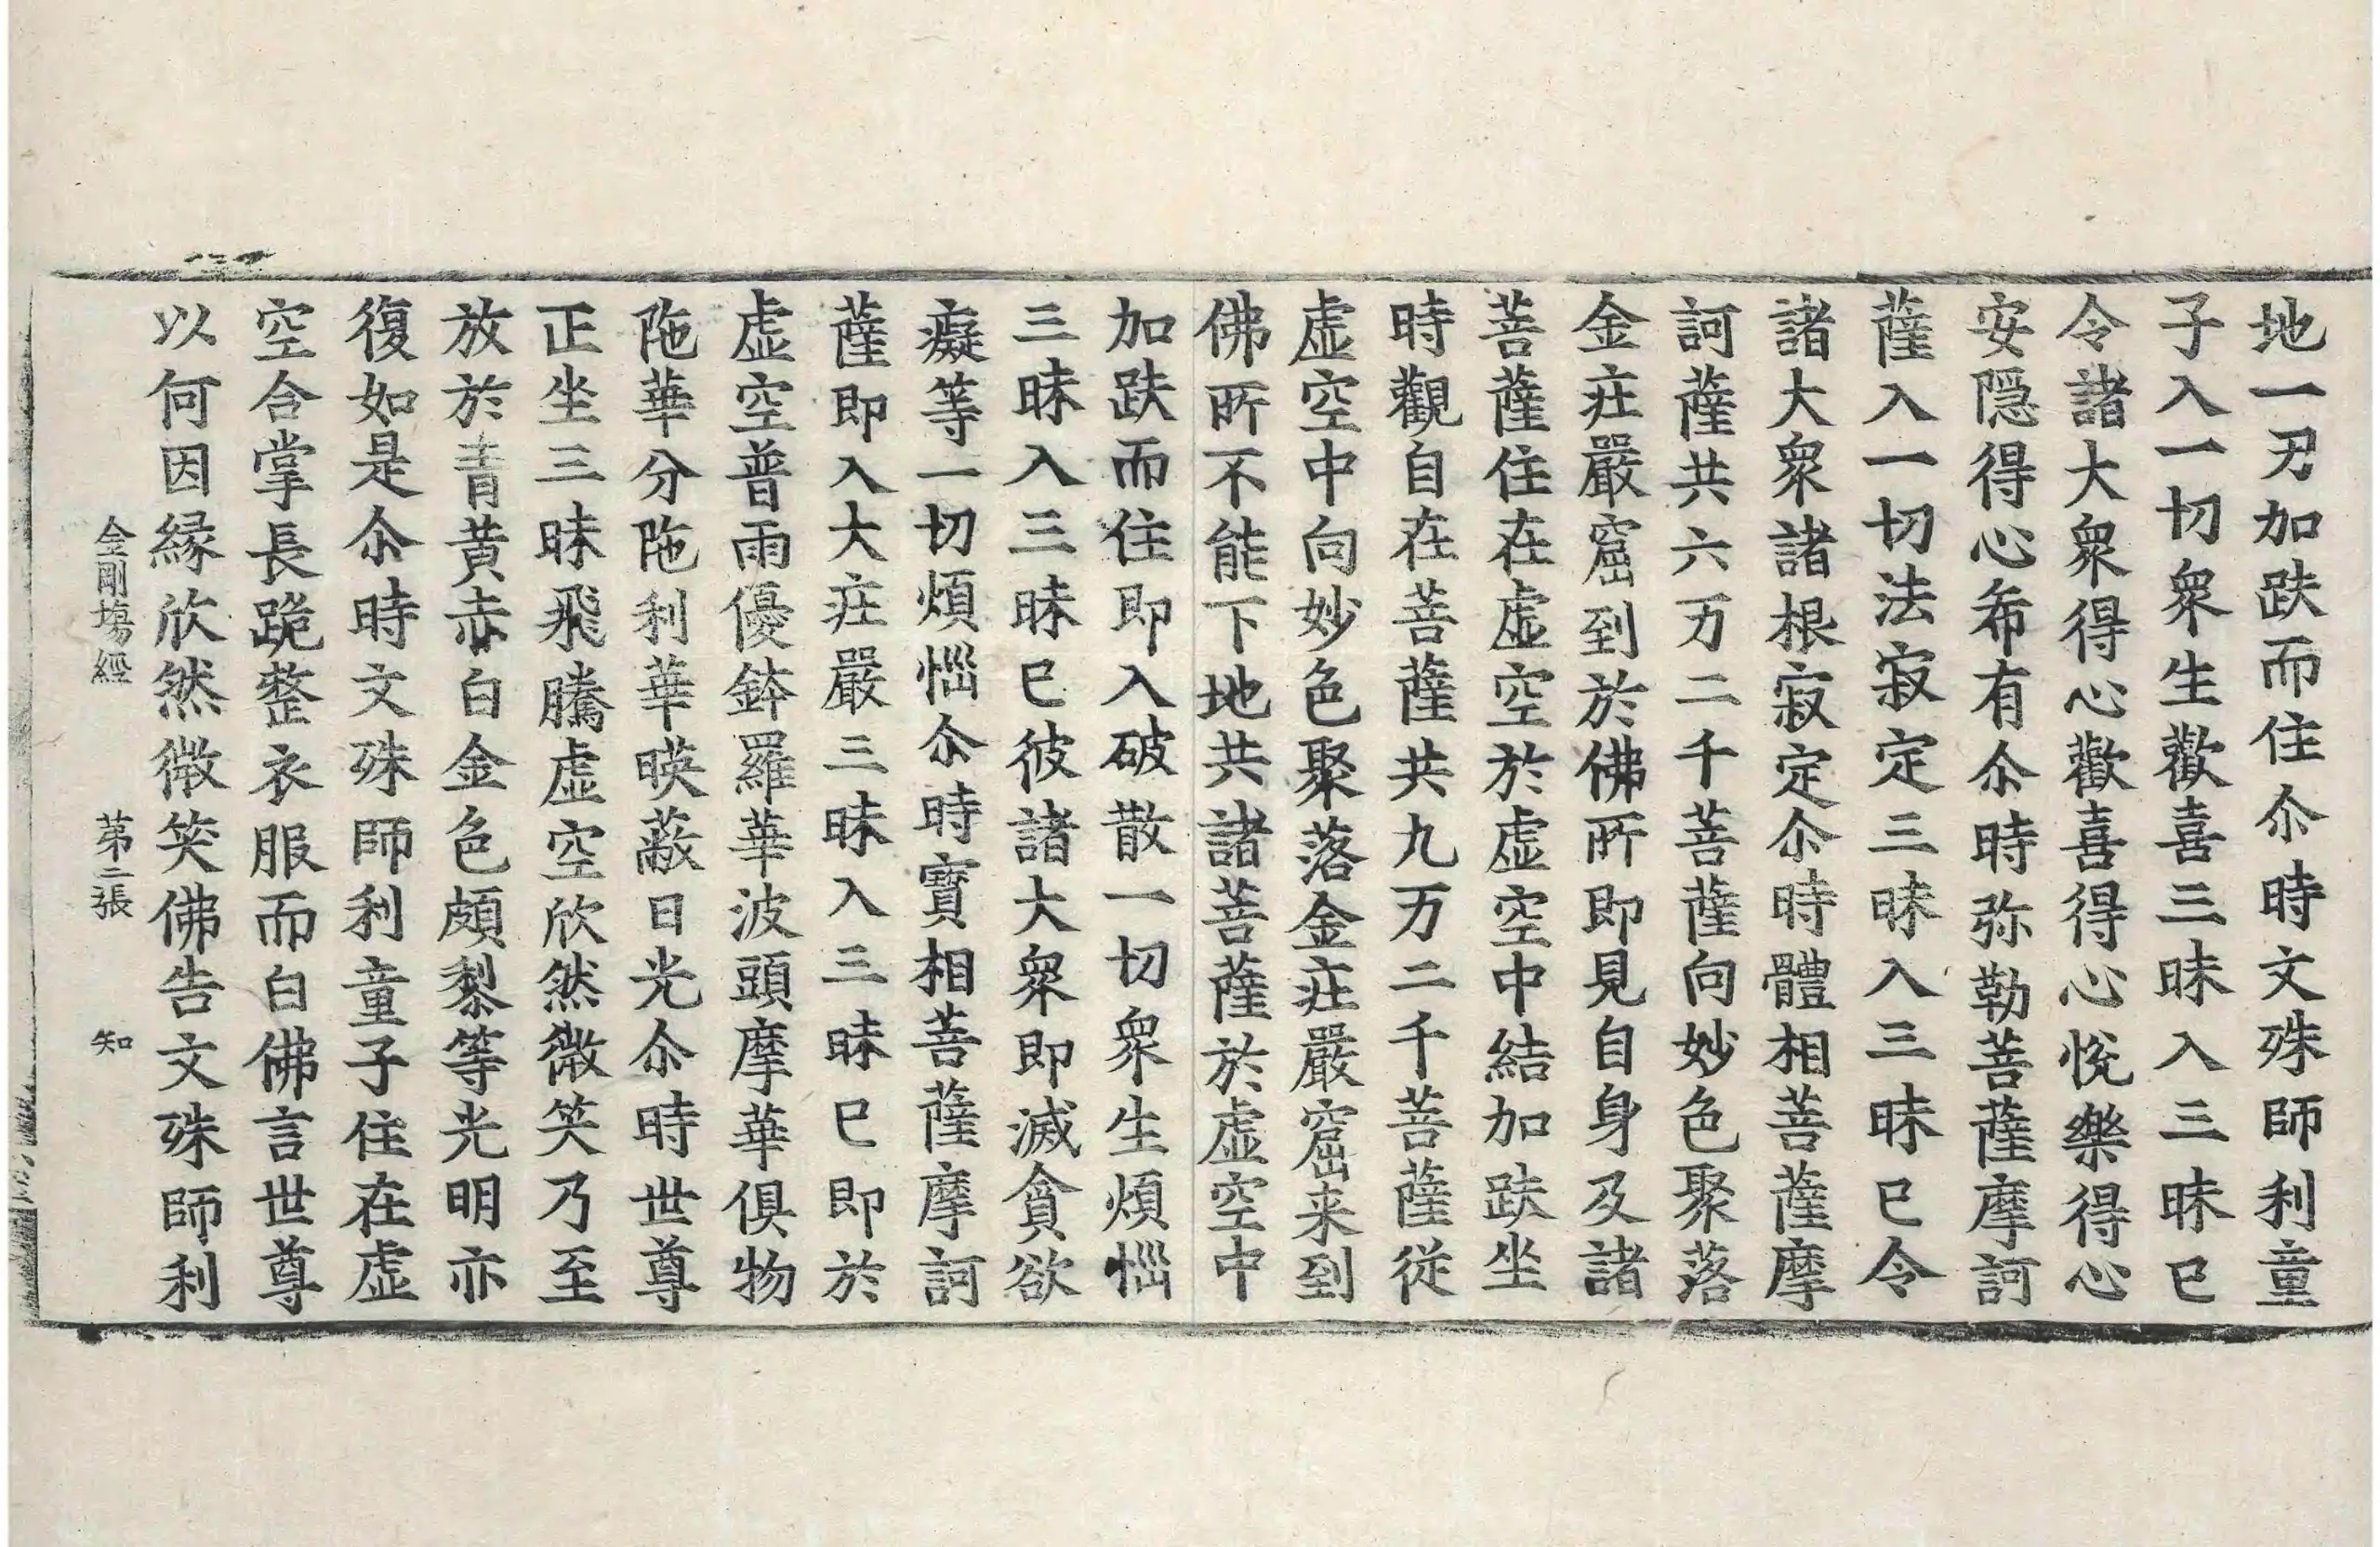 地一刃加趺而住尒時文殊師利童
子入一切衆生歡喜三昧入三昧已
令諸大衆得心歡喜得心悅樂得心
安隱得心希有尒時弥勒菩薩摩訶
薩入一切法寂定三昧入三昧已令
諸大衆諸根寂定尒時體相菩薩摩
訶薩共六万二千菩薩向妙色聚落
金莊嚴窟到於佛所即見自身及諸
菩薩住在虛空於虛空中結加趺坐
時觀自在菩薩共九万二千菩薩從
虛空中向妙色聚落金莊嚴窟来到
佛所不能下地共諸菩薩於虛空中
加趺而住即入破散一切衆生煩惱
三昧入三昧已彼諸大衆即滅貪欲
癡等一切煩惱尒時寶相菩薩摩訶
薩即入大莊嚴三昧入三昧已即於
虛空普雨優鉢羅華波頭摩華俱物
陁華分陁利華暎蔽日光尒時世尊
正坐三昧飛騰虛空欣然微笑乃至
放於青黄赤白金色頗黎等光明亦
復如是尒時文殊師利童子住在虛
空合掌長跪整衣服而白佛言世尊
以何因緣欣然微笑佛告文殊師利
金剛場經 第二張 知